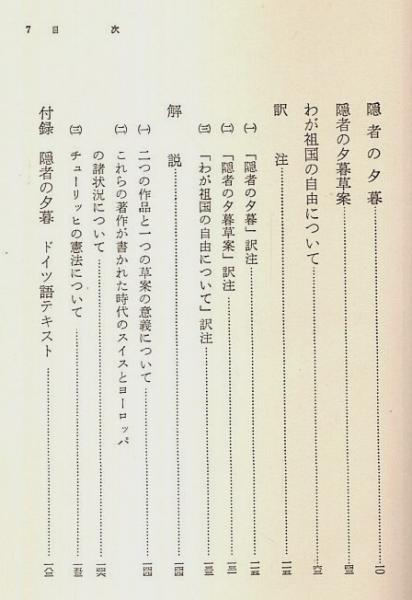 7 目 次
隠者の夕暮……一〇
隠者の夕暮草案……
わが祖国の自由について……
訳 注……一一五
㈠ 『隠者の夕暮』訳注……一一五
㈡ 『隠者の夕暮草案』訳注……
㈢ 『わが祖国の自由について』訳注……
解 説……一四四
㈠ 二つの作品と一つの草案の意義について……一四四
㈡ これらの著作が書かれた時代のスイスとヨーロッパ
の諸状況について……一四六
㈢ チューリッヒの憲法について……
付録 隠者の夕暮 ドイツ語テキスト……